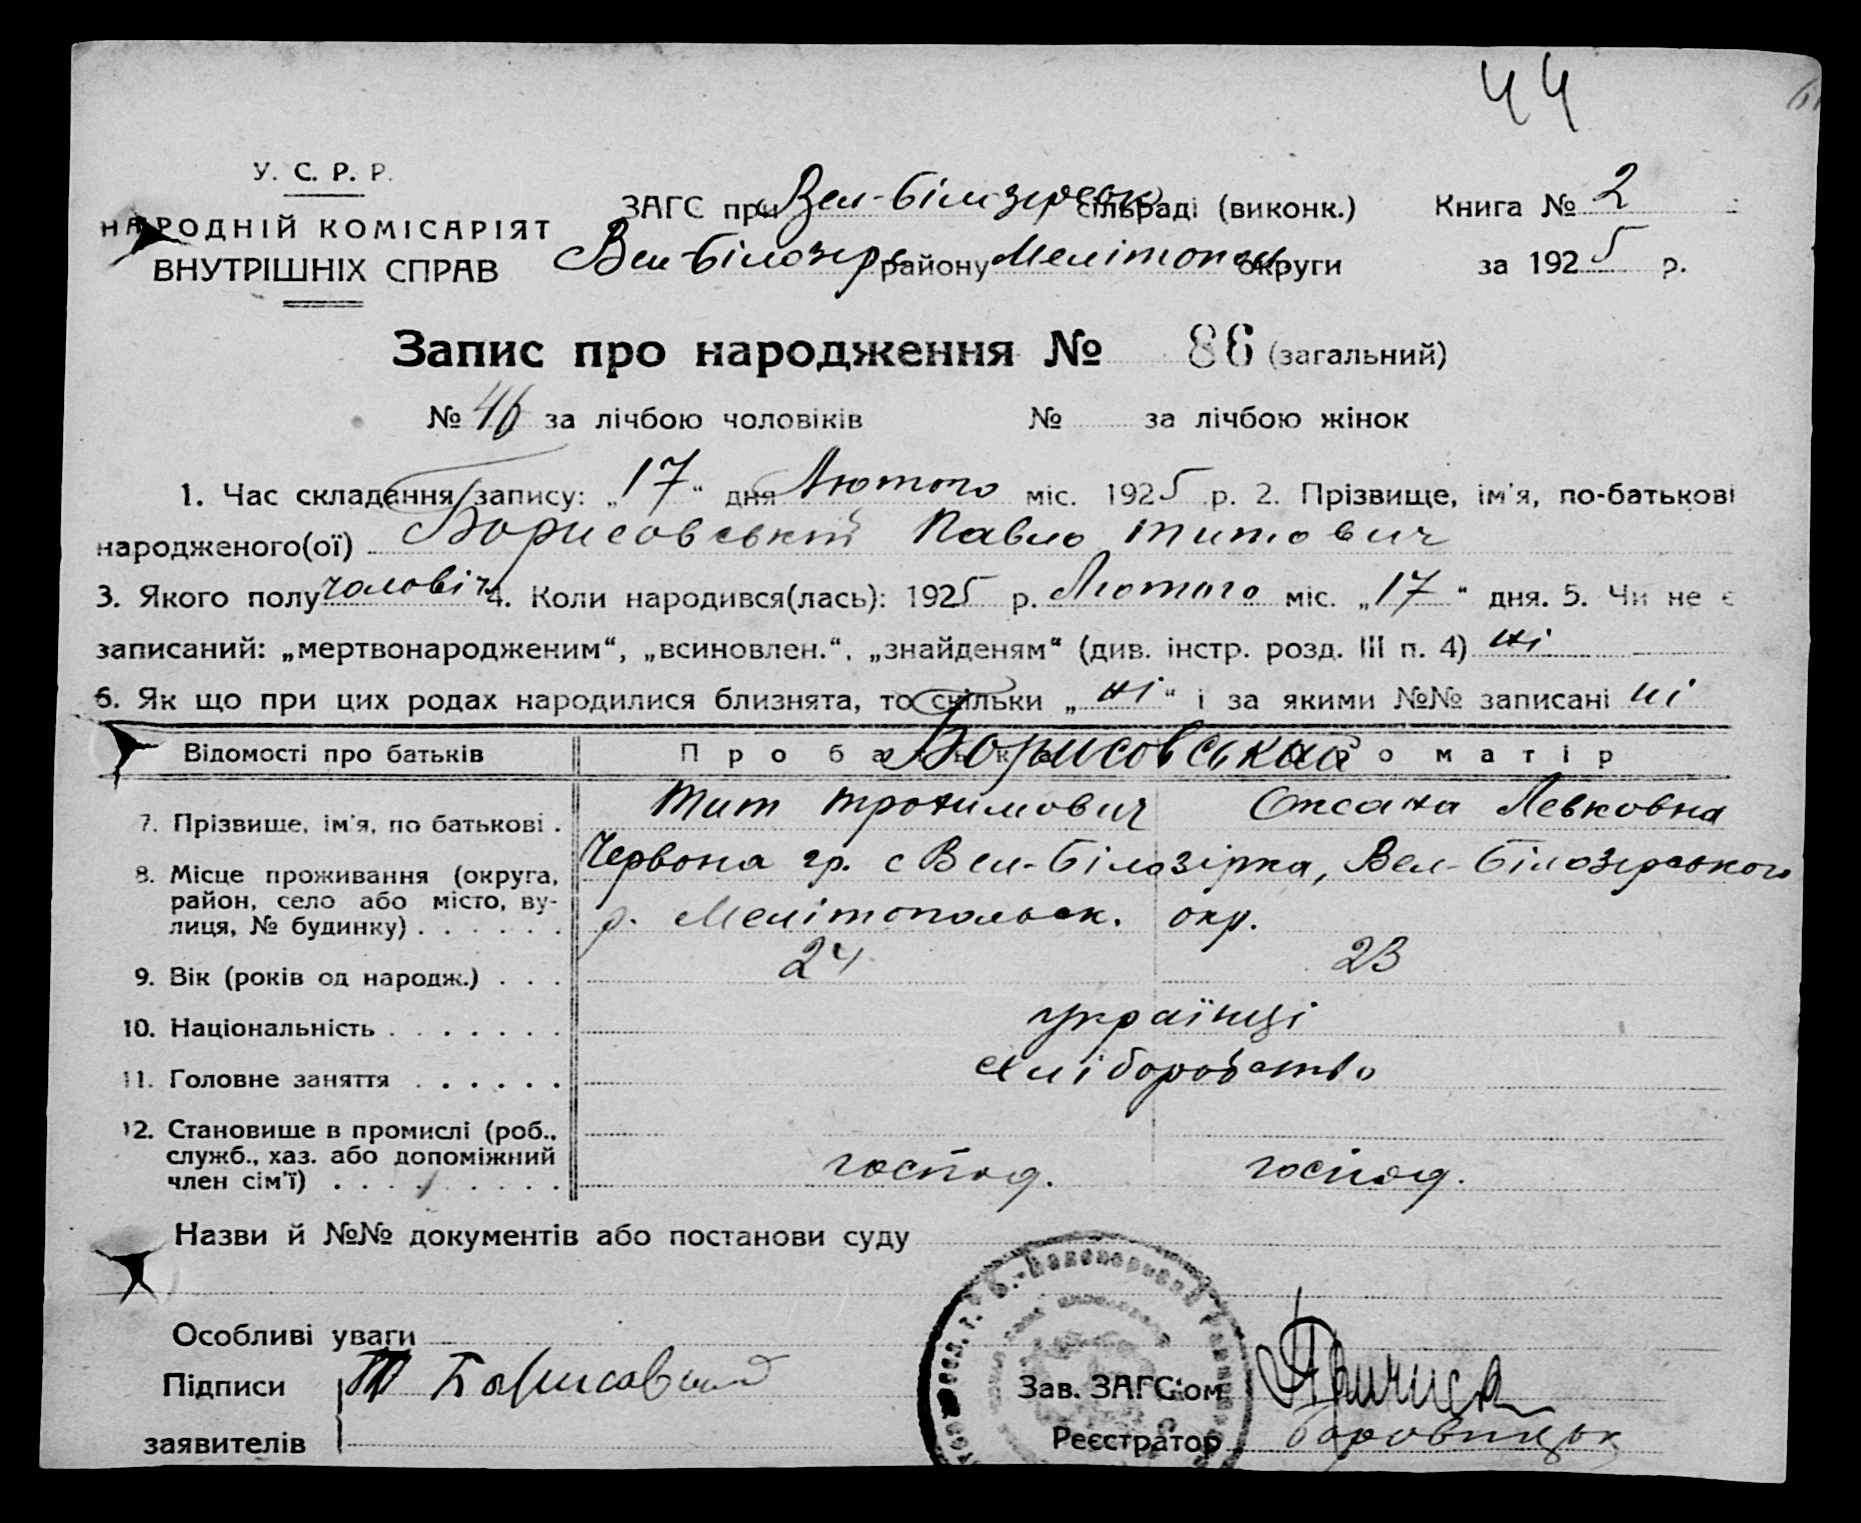 44
У. С. Р. Р.
НАРОДНІЙ КОМІСАРІЯТ
ВНУТРІШНІХ СПРАВ
ЗАГС при Вел-Білозерськ сільраді (виконк.) Книга № 2
Вел-Білозер району Мелітопол округи за 1925 р.
Запис про народження № 86 (загальний)
№ 46 за лічбою чоловіків № за лічбою жінок
1. Час складання запису: „17“ дня Лютого міс. 1925 р. 2. Прізвище, ім'я, по-батькові
народженого(ої) Борисовський Павло Титович
3. Якого полу чоловіч 4. Коли народився(лась): 1925 р. Лютого міс. „17“ дня. 5. Чи не є
записаний: „мертвонародженим“, „всиновлен.“, „знайденям“ (див. інстр. розд. III п. 4) ні
6. Як що при цих родах народилися близнята, то скільки „ні“ і за якими №№ записані ні
Відомості про батьків Про батька Борисовська Про матір
7. Прізвище, ім'я, по батькові . Тит Трохимович Оксана Левковна
8. Місце проживання (округа, район, село або місто, вулиця, № будинку) . . . . . . Червона гр. с Вел-Білозірка, Вел-Білозерського
р. Мелітопольск. окр.
9. Вік (років од народж.) . . . 24 23
10. Національність . . . . . . . українці
11. Головне заняття . . . . . . хліборобство
12. Становище в промислі (роб., служб., хаз. або допоміжний член сім'ї) . . . . . . . . господ. господ.
Назви й №№ документів або постанови суду
Особливі уваги
Підписи Т Борисовский Зав. ЗАГС'ом
заявителів Реєстратор